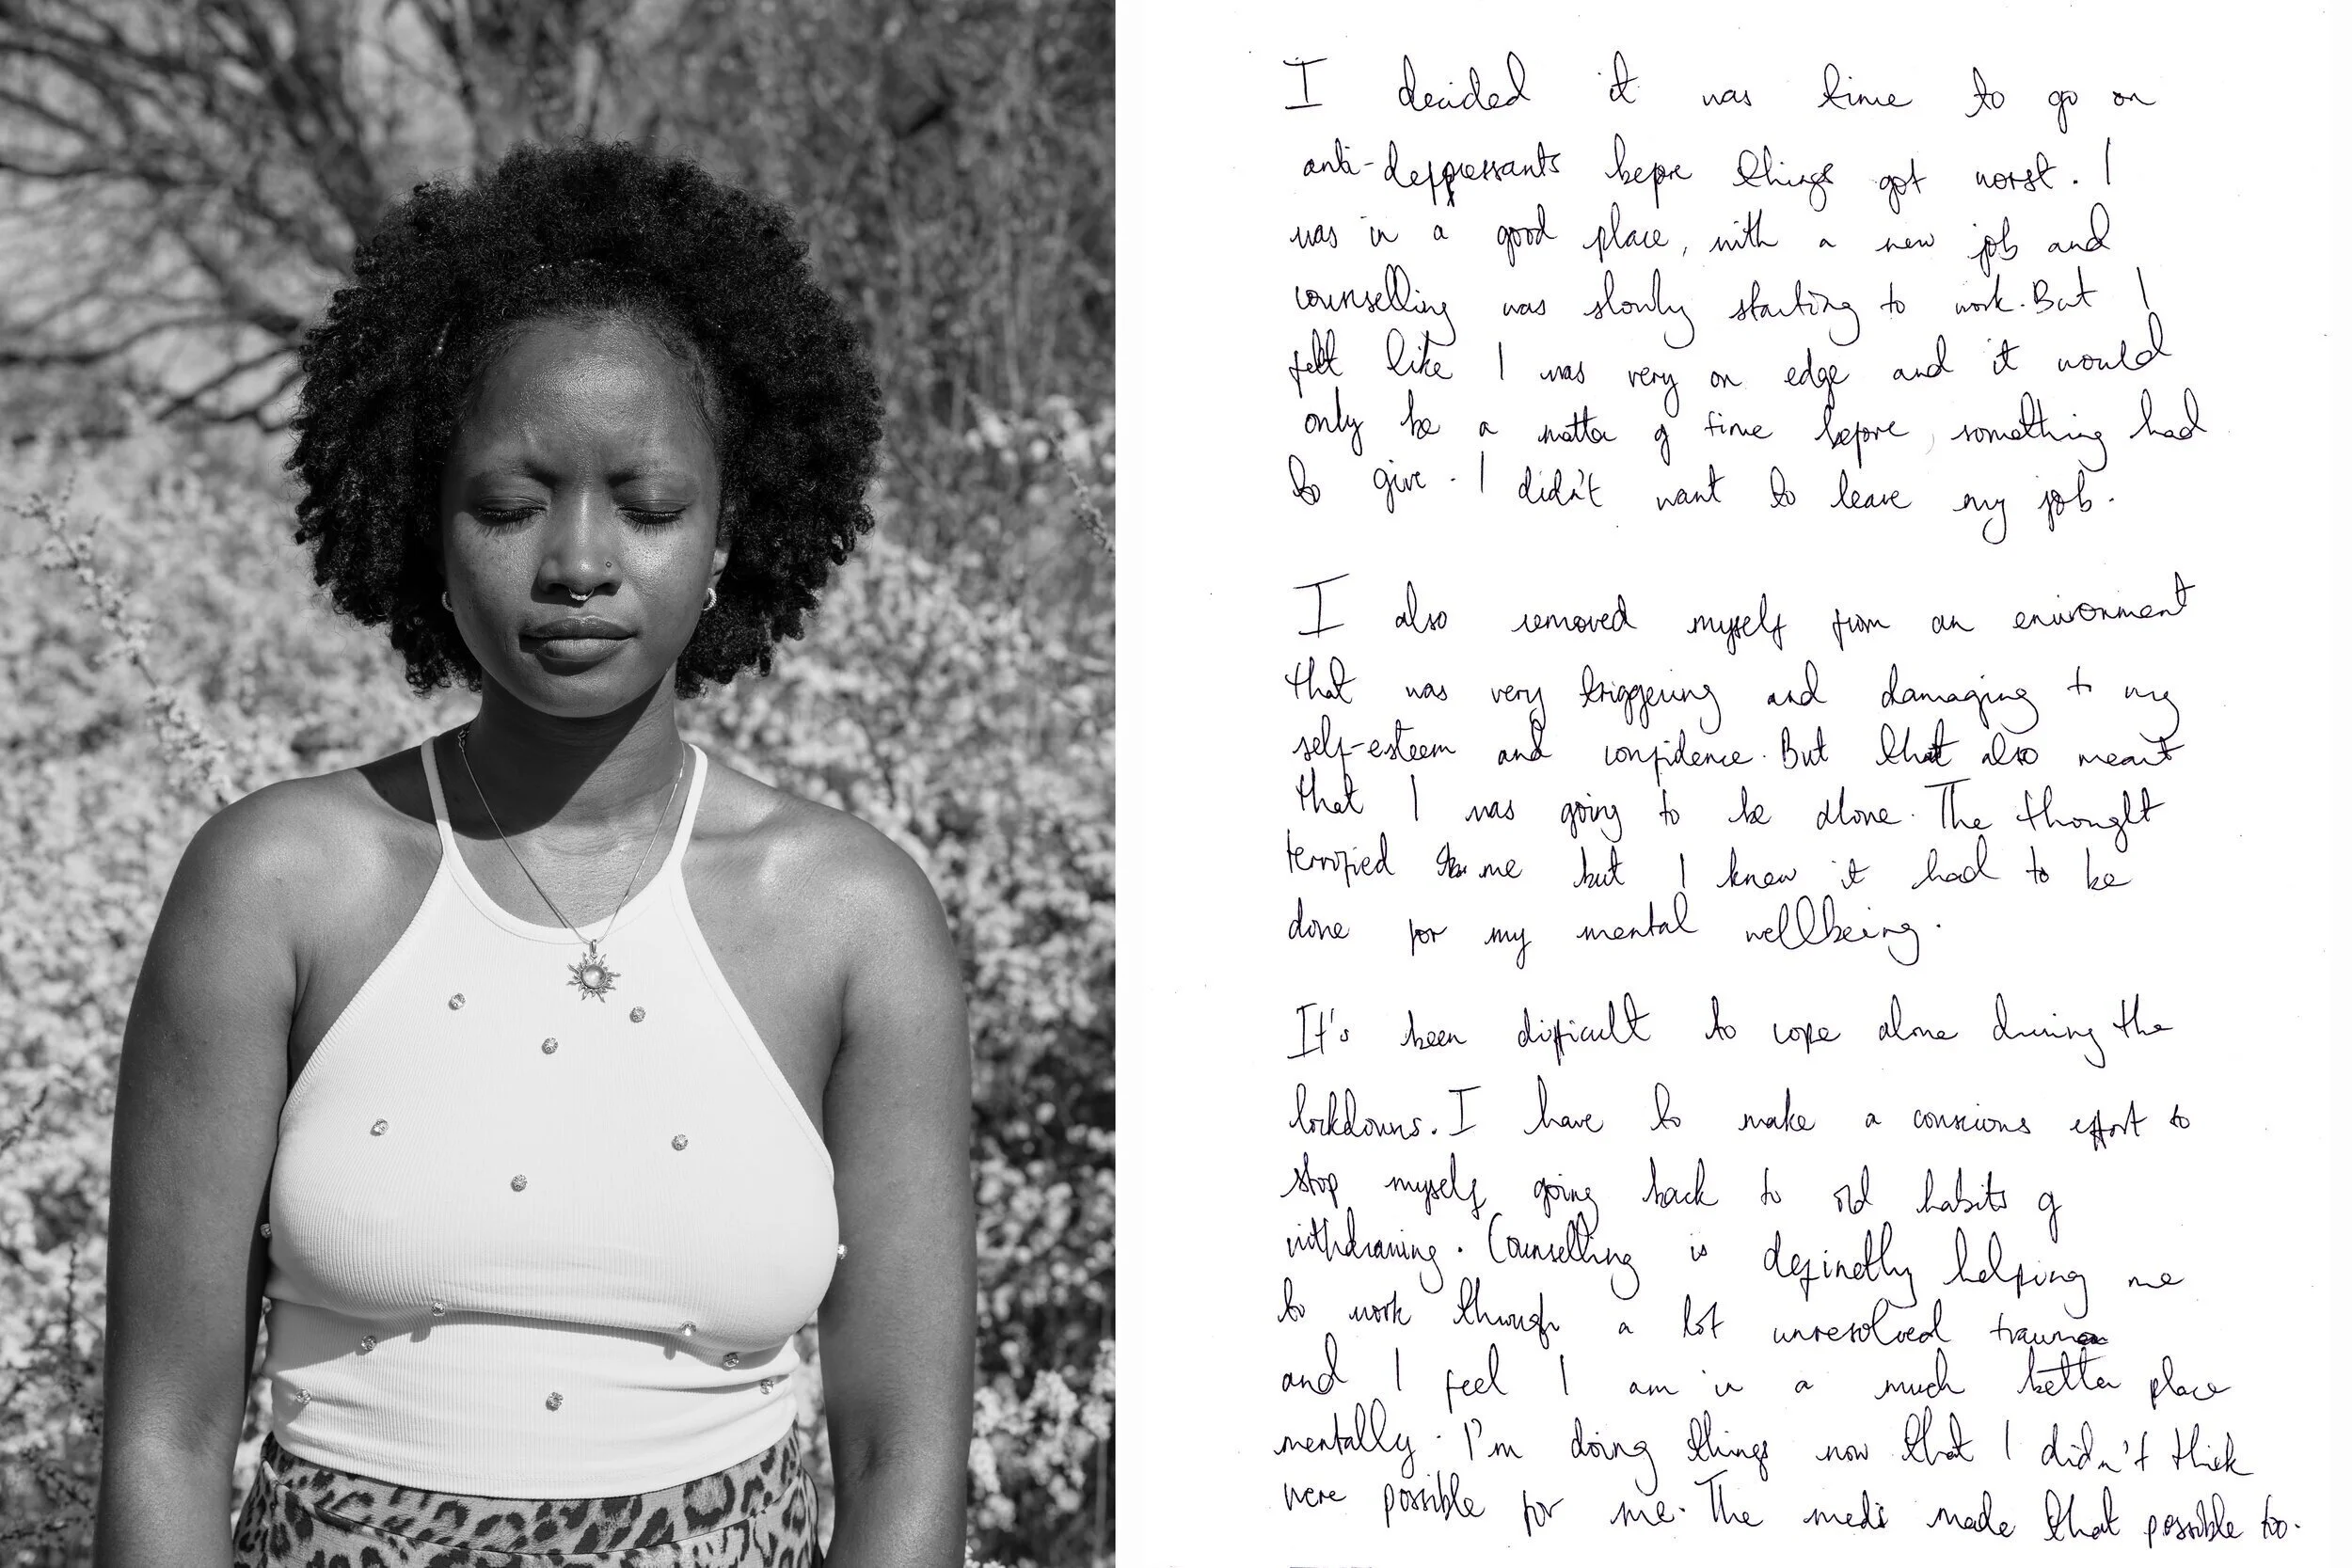 I decided it was time to go on
anti-deppressants before things got worst. I
was in a good place, with a new job and
counselling was slowly starting to work. But I
felt like I was very on edge and it would
only be a matter of time before something had
to give. I didn't want to leave my job.
I also removed myself from an environment
that was very triggering and damaging to my
self-esteem and confidence. But that also meant
that I was going to be alone. The thought
terrified me but I knew it had to be
done for my mental wellbeing.
It's been difficult to cope alone during the
lockdowns. I have to make a conscious effort to
stop myself going back to old habits of
withdrawing. Counselling is definetly helping me
to work through a lot unresolved trauma
and I feel I am in a much better place
mentally. I'm doing things now that I didn't think
were possible for me. The meds made that possible too.